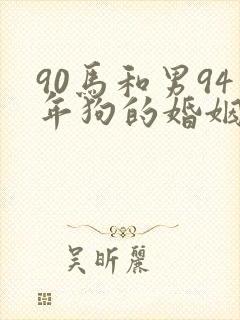 90馬和男94
年狗的婚姻
吴昕麗